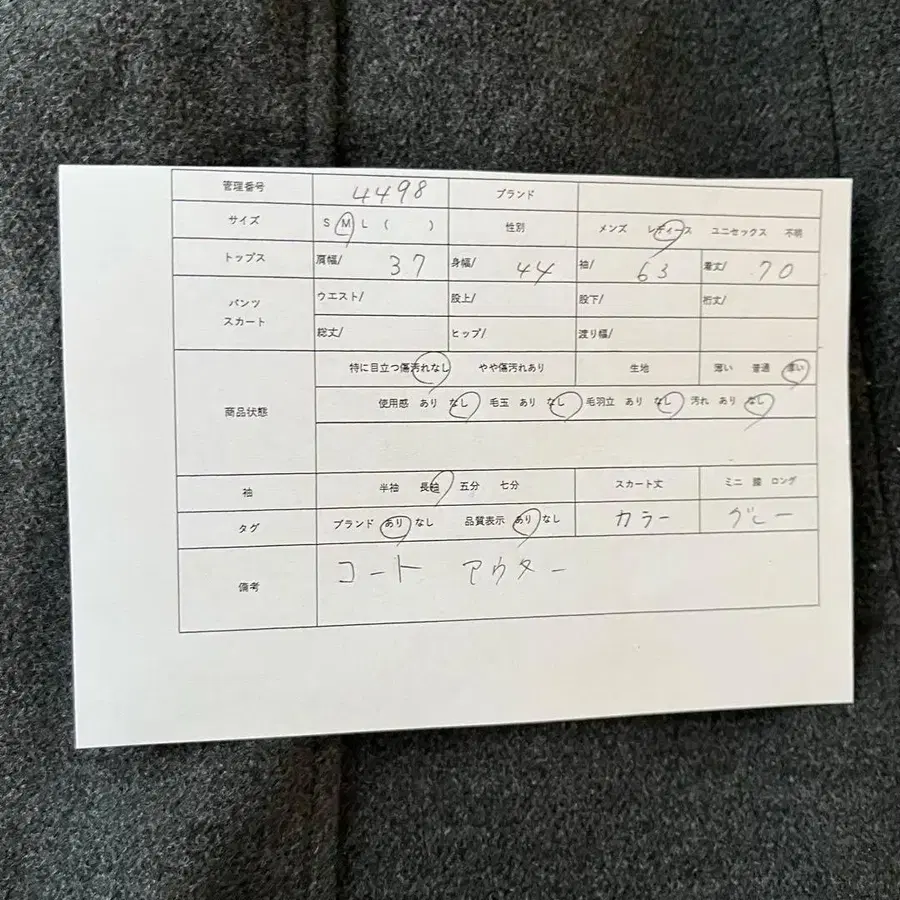 管理番号 4498 ブランド
サイズ S M L ( ) 性別 メンズ レディース ユニセックス 不明
トップス 肩幅/ 37 身幅/ 44 袖/ 63 着丈/ 70
パンツ スカート
ウエスト/ 股上/ 股下/ 裄丈/
総丈/ ヒップ/ 渡り幅/
商品状態
特に目立つ傷汚れなし やや傷汚れあり 生地 薄い 普通 厚い
使用感 あり なし 毛玉 あり なし 毛羽立 あり なし 汚れ あり なし
袖 半袖 長袖 五分 七分 スカート丈 ミニ 膝 ロング
タグ ブランド あり なし 品質表示 あり なし カラー グレー
備考 コート アウター